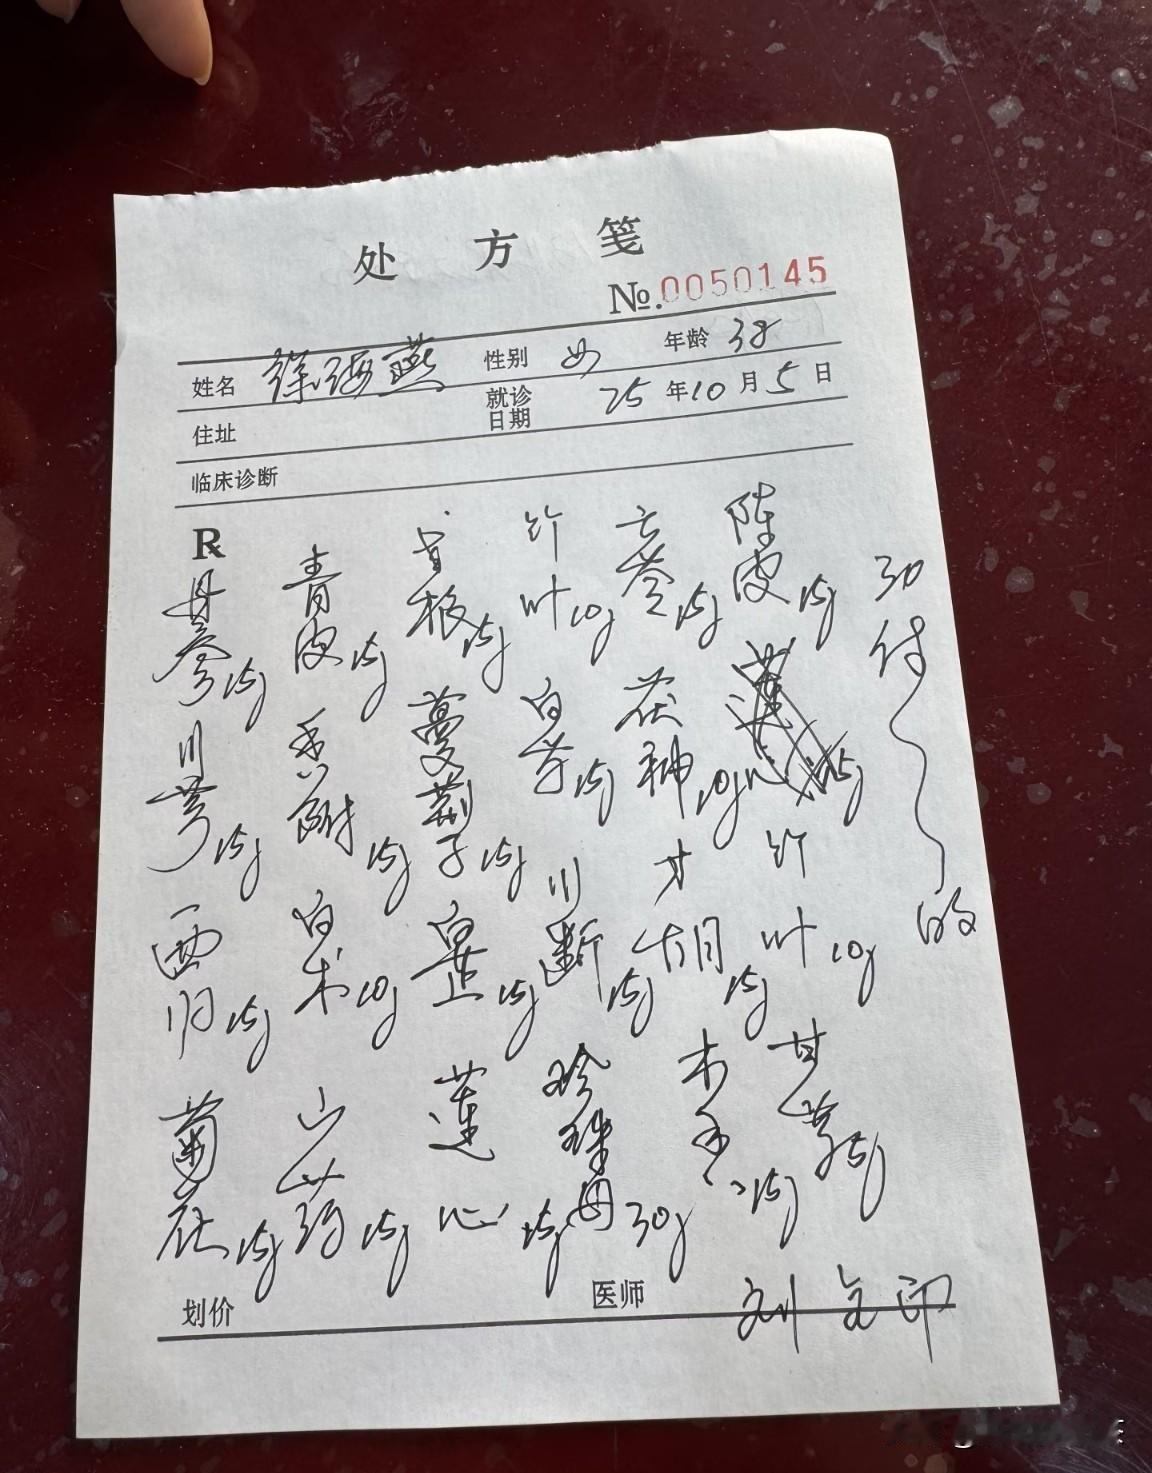 处方笺
No.0050145
姓名 徐海燕 性别 女 年龄 38
住址 就诊日期 25年10月5日
临床诊断
R
丹参15g 青皮15g 根15g 竹叶10g 云苓15g 陈皮15g 30付
川芎15g 香附15g 蔓荆子15g 白芍15g 茯神10g
西归15g 白术10g 白芷15g 川断15g 才胡15g 竹叶10g 的
菊花15g 山药15g 莲心15g 珍珠母30g 木香15g 甘草5g
划价 医师 刘